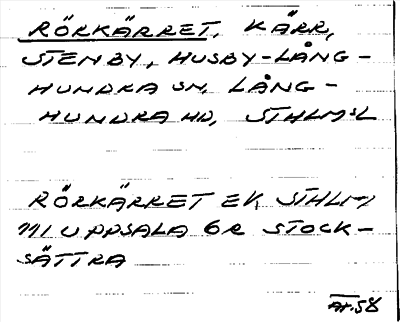 RÖRKÄRRET, KÄRR,
STENBY, HUSBY-LÅNG-
HUNDRA SN, LÅNG-
HUNDRA HD, STHLMSL
RÖRKÄRRET EK, STHLM
111 UPPSALA 6R STOCK-
SÄTTRA
AH.58